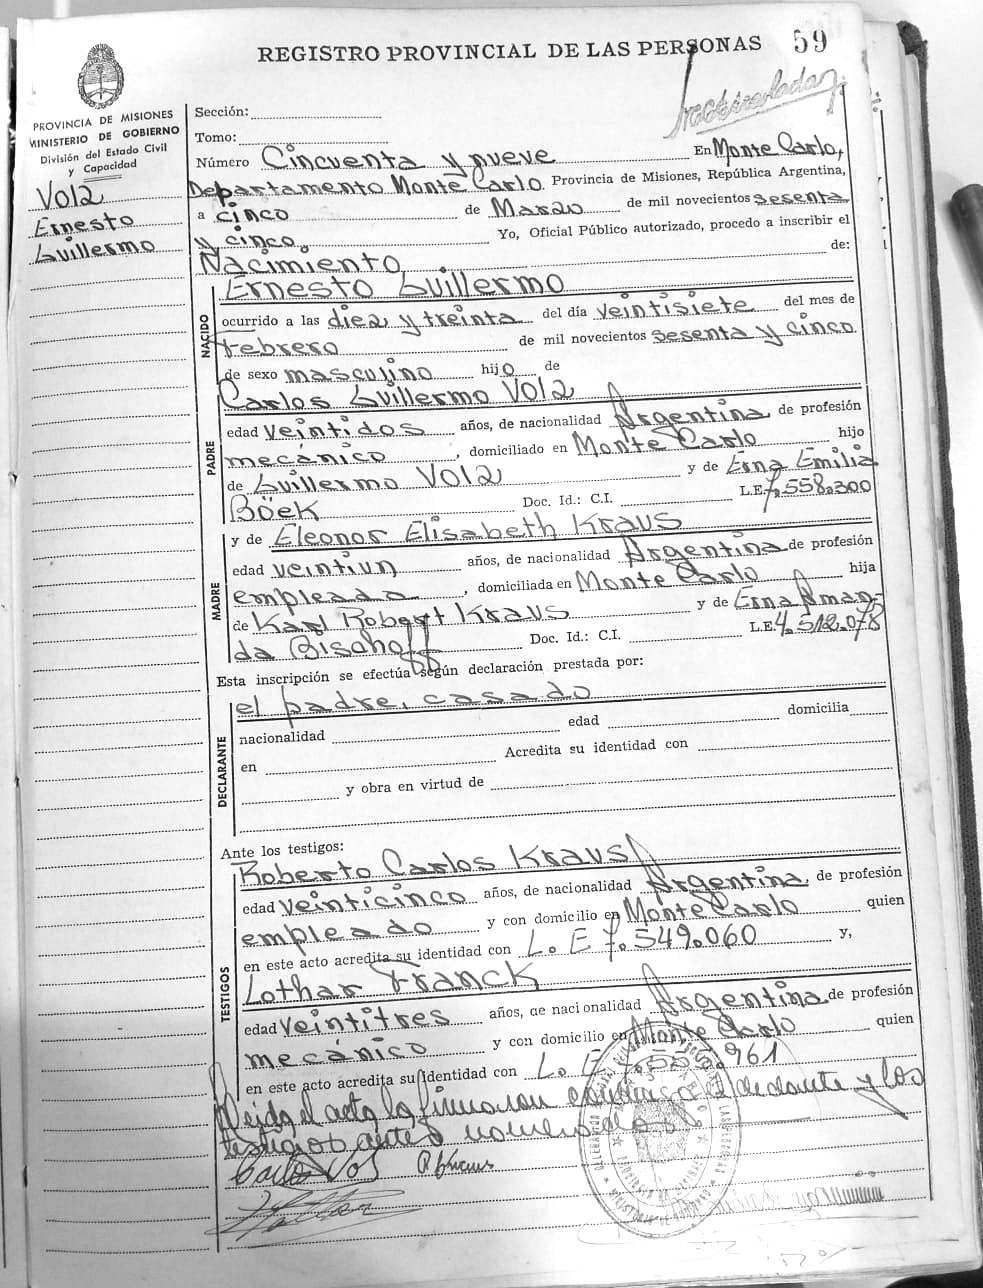 REGISTRO PROVINCIAL DE LAS PERSONAS 59
PROVINCIA DE MISIONES
MINISTERIO DE GOBIERNO
División del Estado Civil
y Capacidad
Volz
Ernesto
Guillermo
Sección:
Tomo:
Número Cincuenta y nueve En Monte Carlo,
Departamento Monte Carlo. Provincia de Misiones, República Argentina,
a cinco de Marzo de mil novecientos sesenta
y cinco. Yo, Oficial Público autorizado, procedo a inscribir el
Nacimiento de:
NACIDO
Ernesto Guillermo
ocurrido a las diez y treinta del día veintisiete del mes de
febrero de mil novecientos sesenta y cinco
de sexo masculino hijo de
PADRE
Carlos Guillermo Volz
edad veintidos años, de nacionalidad Argentina de profesión
mecánico, domiciliado en Monte Carlo hijo
de Guillermo Volz y de Erna Emilia
Böek Doc. Id.: C.I. L.E. 7.558.300
MADRE
y de Eleonor Elisabeth Kraus
edad veintiun años, de nacionalidad Argentina de profesión
empleada, domiciliada en Monte Carlo hija
de Karl Robert Kraus y de Erna Aman-
da Bischoff Doc. Id.: C.I. L.E. 4.512.078
Esta inscripción se efectúa según declaración prestada por:
DECLARANTE
el padre, casado
nacionalidad edad domicilia
en Acredita su identidad con
y obra en virtud de
Ante los testigos:
TESTIGOS
Roberto Carlos Kraus
edad veinticinco años, de nacionalidad Argentina, de profesión
empleado y con domicilio en Monte Carlo quien
en este acto acredita su identidad con L. E 7.549.060 y,
Lothar Franck
edad veintitres años, de nacionalidad Argentina de profesión
mecánico y con domicilio en Monte Carlo quien
en este acto acredita su identidad con L. E 7.553.961
Leida el acta la firmaron conmigo el declarante y los
testigos antes nombrados
Carlos Vol